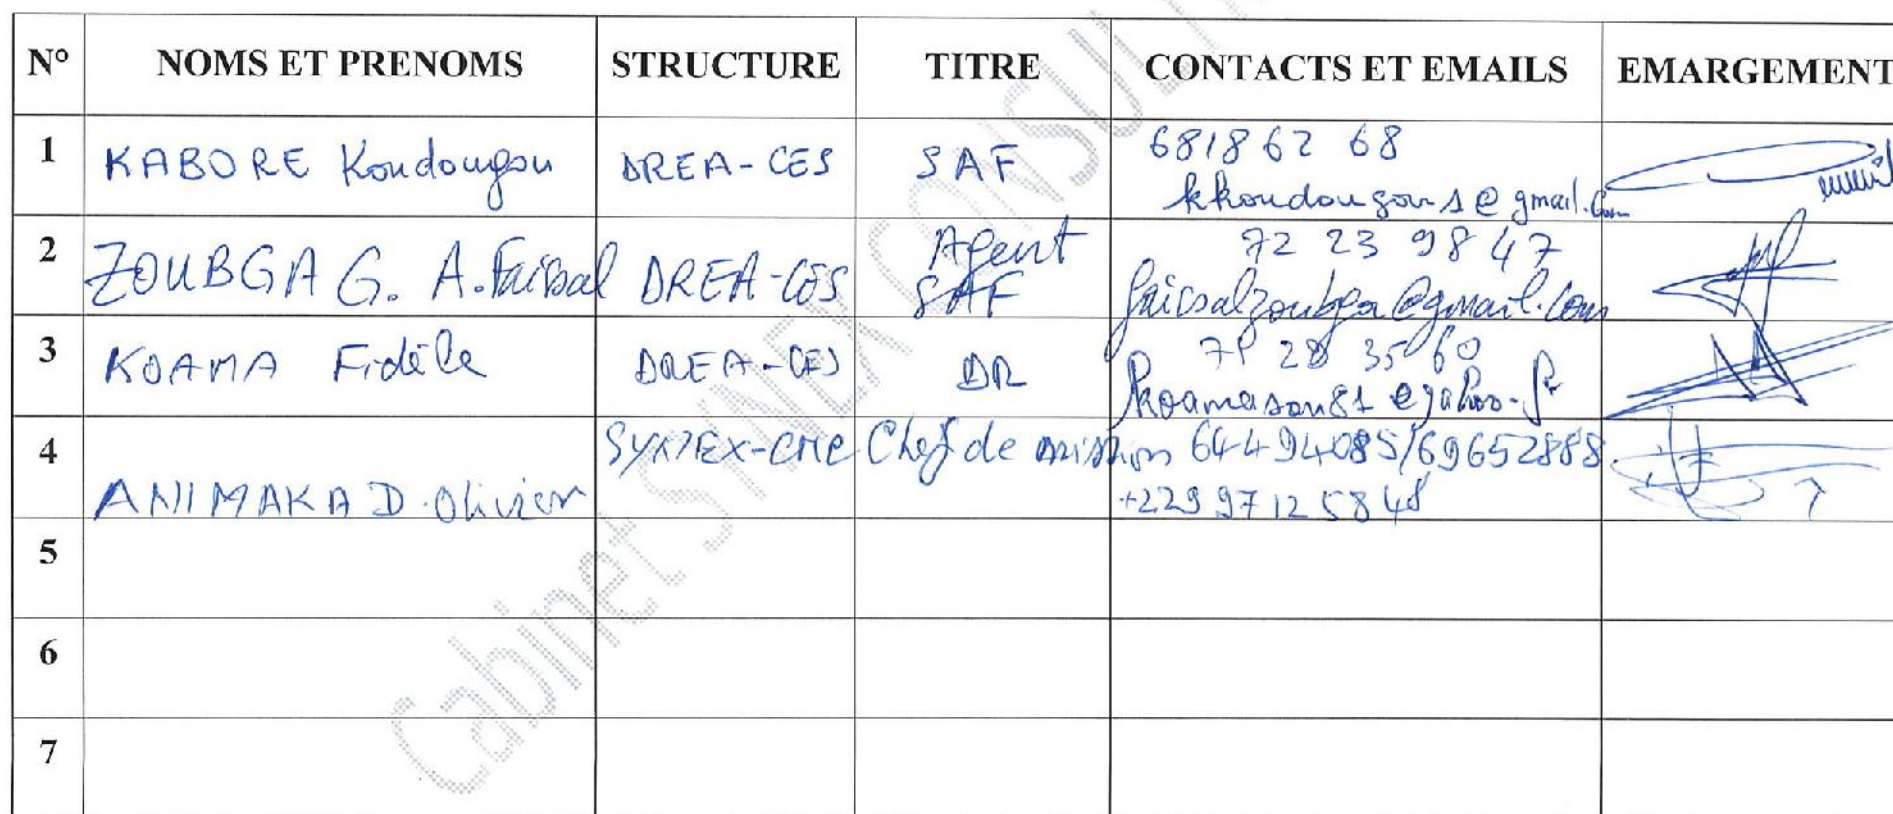 N° NOMS ET PRENOMS STRUCTURE TITRE CONTACTS ET EMAILS EMARGEMENT
1 KABORE Koudougou DREA-CES SAF 68186268
kkoudougou1@gmail.com
2 ZOUBGA G. A. Faissal DREA-CES Agent SAF 72 23 98 47
faissalzoubga@gmail.com
3 KOAMA Fidèle DREA-CES DR 28 35 60
koamason81@yahoo.fr
4 ANIMAKA D. Olivier Chef de mission 64494085/69652888
+229 97125848
5
6
7
Cabinet SYNEX CONSULT